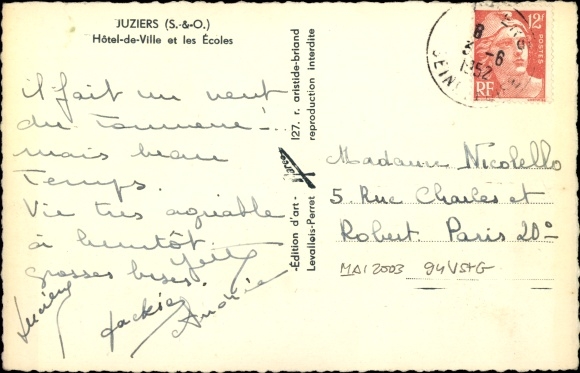 JUZIERS (S.-&-O.)
Hôtel-de-Ville et les Écoles
il fait un vent
du tonnerre
mais beau
temps.
Vie très agréable
à bientôt.
grosses bises.
Lucien
Jackie
-Édition d'art-
Levallois-Perret
127, r. aristide-briand
reproduction interdite
12F
POSTES
RF
8
-6
1952
SEINE
Madame Nicolello
5 Rue Charles et
Robert Paris 20e
MAI 2003